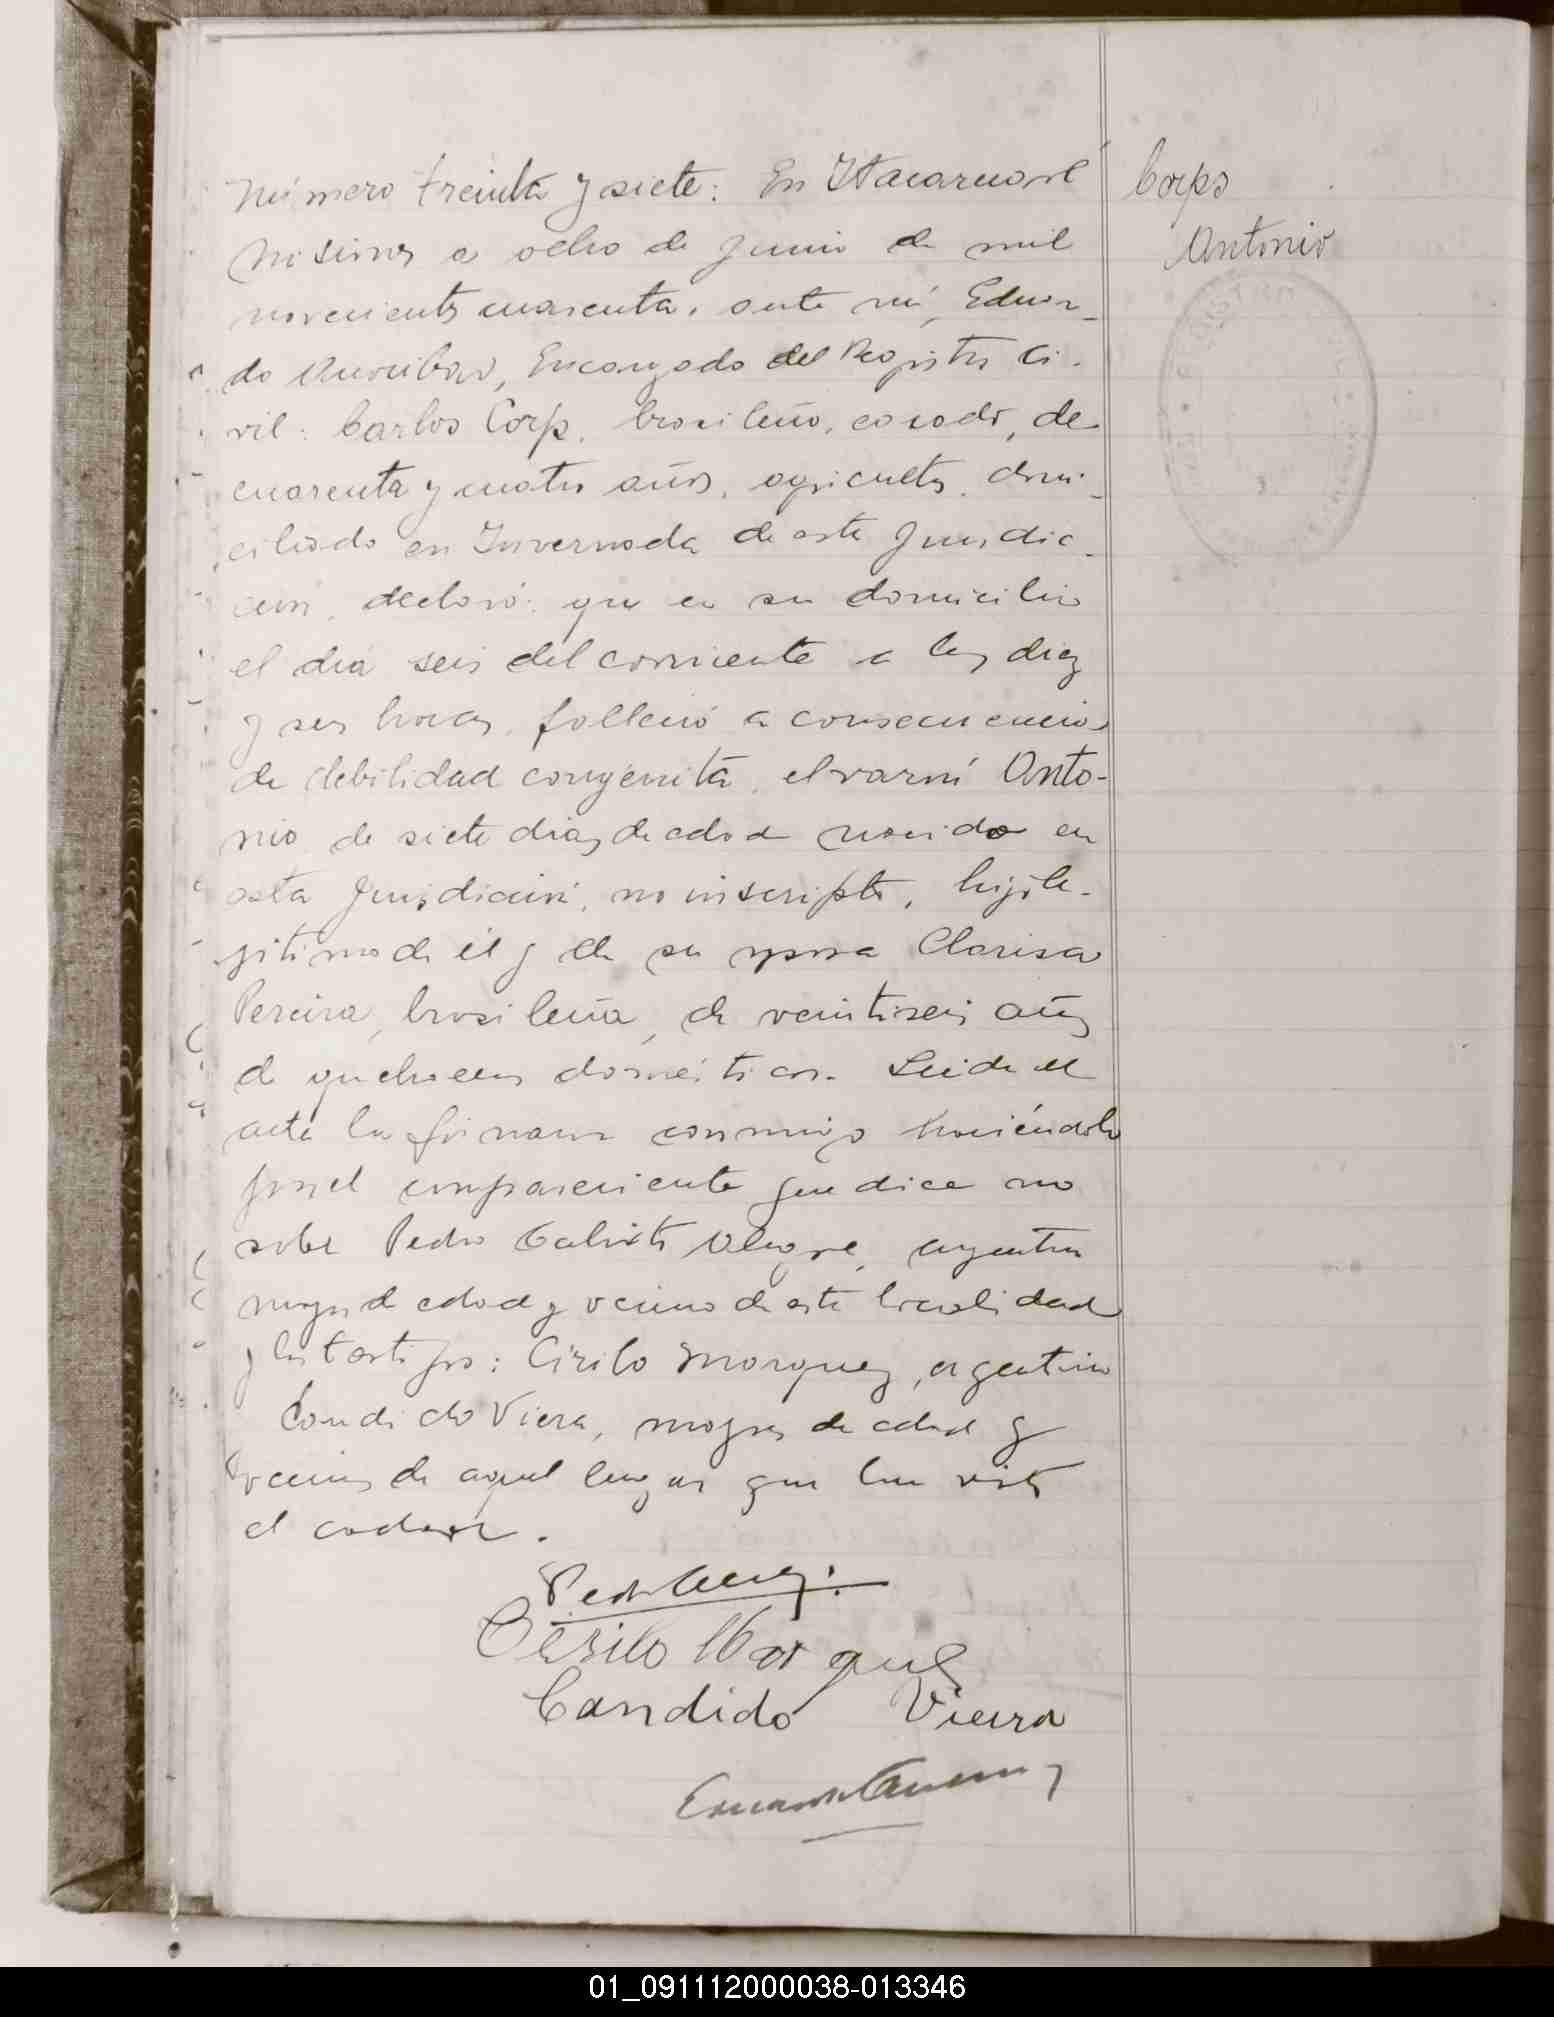 Número treinta y siete: En Itacaruaré
Corps
Antonio
Misiones a ocho de Junio de mil
novecientos cuarenta, ante mí, Eduar-
do, Encargado del Registro Ci-
vil: Carlos Corp, brasileño, casado, de
cuarenta y cuatro años, agricultor, domi-
ciliado en Invernada de esta Jurisdic-
ción, declaró: que en su domicilio
el día seis del corriente a las diez
y seis horas, falleció a consecuencia
de debilidad congénita, el varón Anto-
nio de siete dias de edad nacido en
esta Jurisdicción, no inscripto, hijo le-
gitimo de él y de su esposa Clarisa
Pereira, brasileña, de veintiseis años
de quehaceres domésticos. Leida el
acta la firmaron conmigo haciéndolo
por el compareciente que dice no
saber Pedro Calixto Alegre, argentino
mayor de edad y vecino de esta localidad
y los testigos: Cirilo Marquez, argentino
Candido Viera, mayores de edad y
vecinos de aquel lugar que han visto
el cadaver.
Cirilo Marquez
Candido Vieira